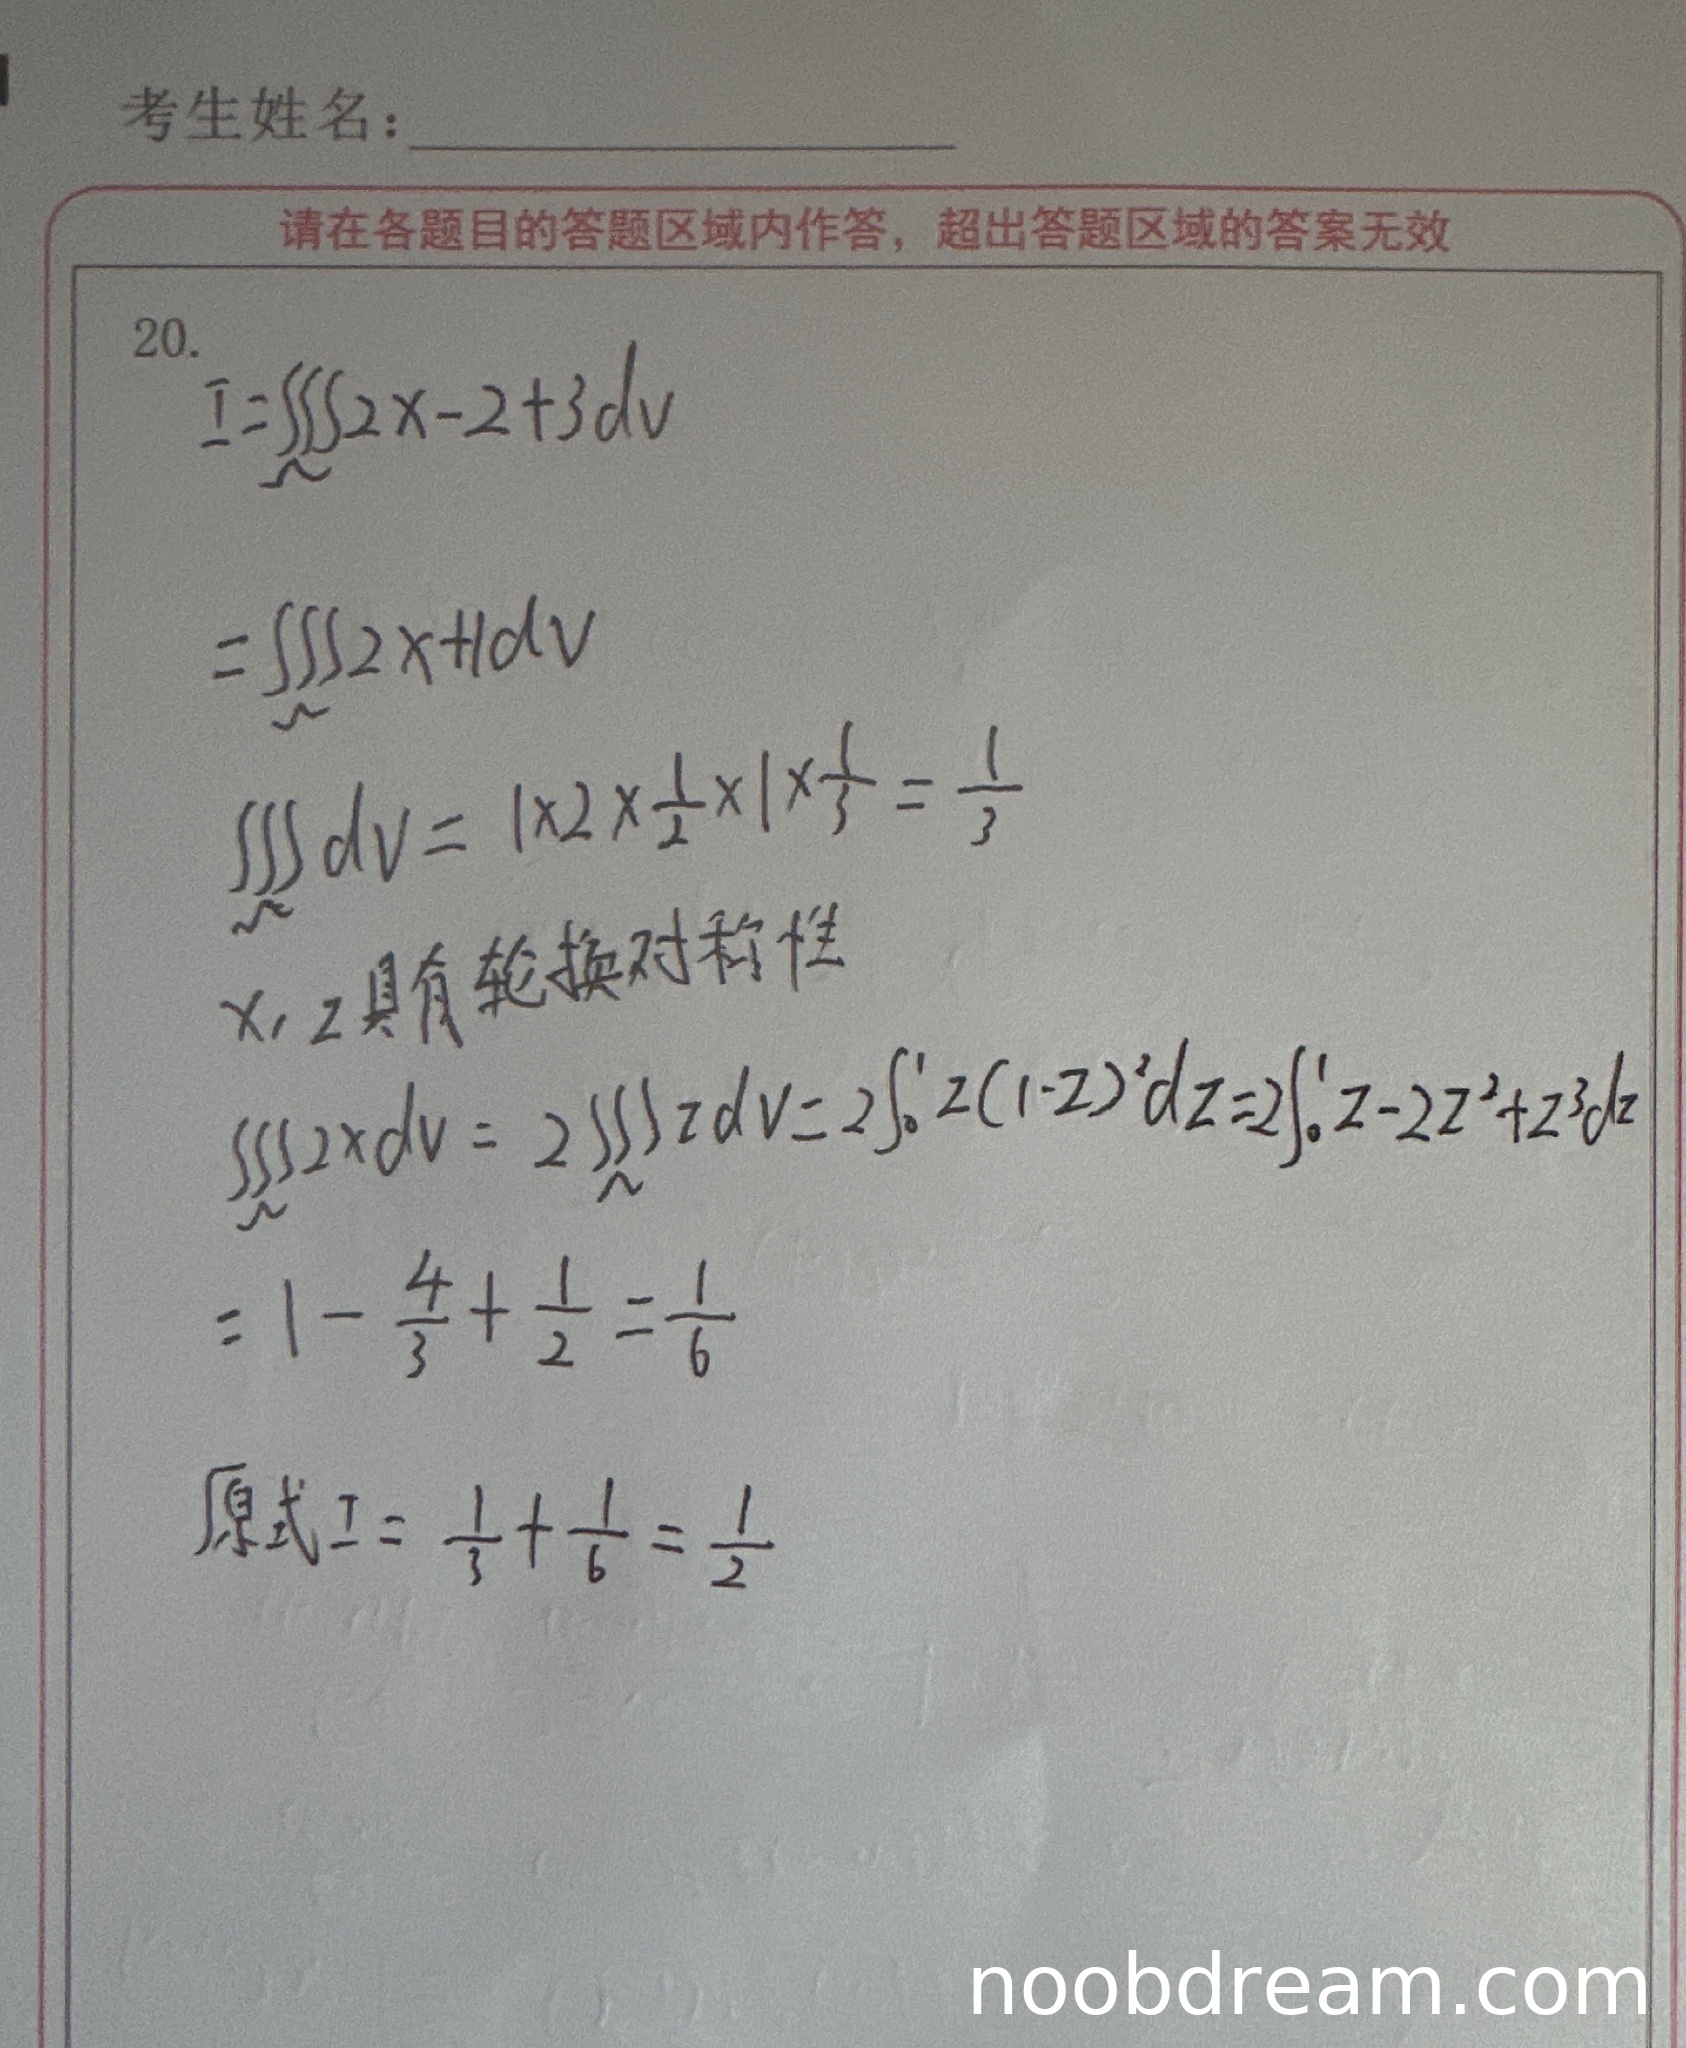 考生姓名：
请在各题目的答题区域内作答，超出答题区域的答案无效
20.
I=∭2x-2+3dv
=∭2x+1dv
∭dv= 1×2×1/2×1×1/3=1/3
x, z具有轮换对称性
∭2xdv=2∭zdv=2∫₀¹z(1-z)²dz=2∫₀¹z-2z²+z³dz
=1-4/3+1/2=1/6
原式I=1/3+1/6=1/2
noobdream.com